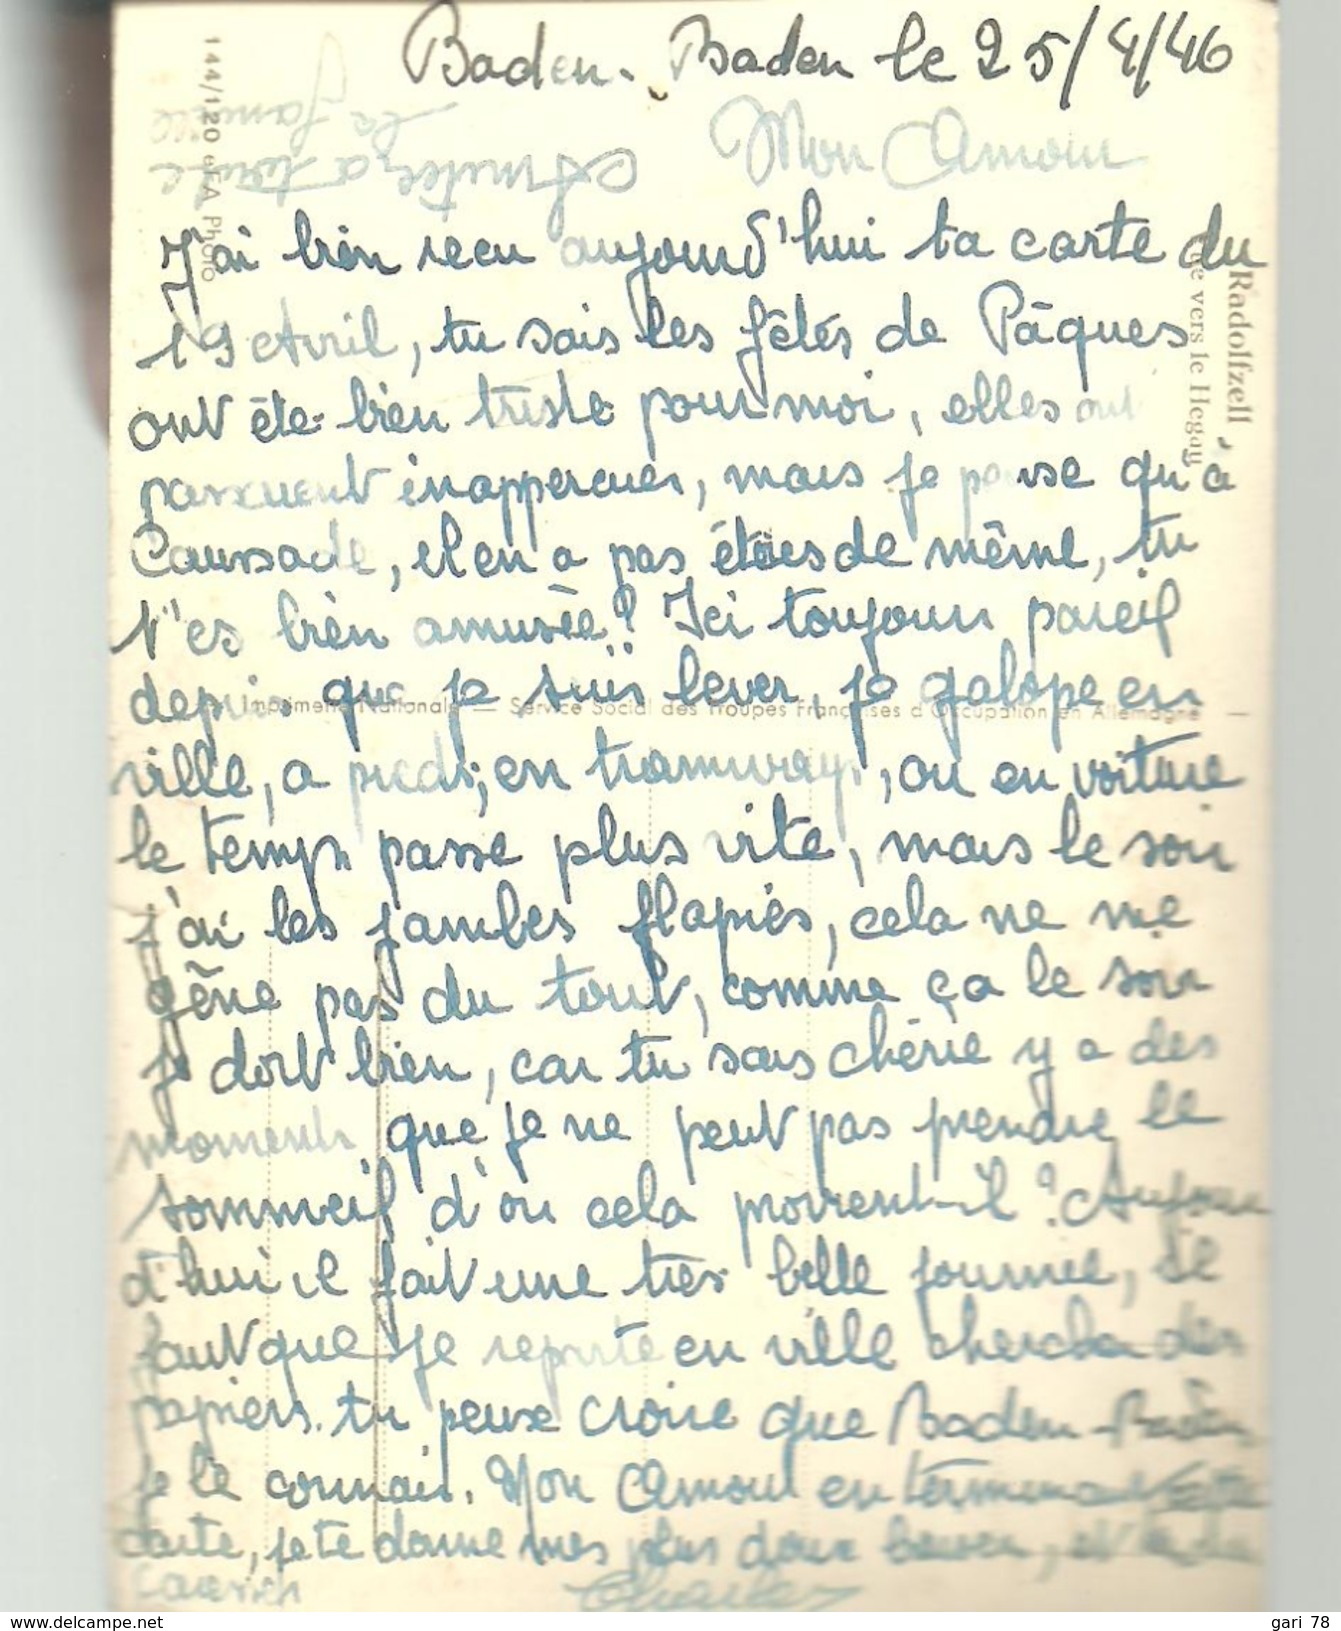 Baden-Baden le 25/4/46
Mon Amour
J'ai bien recu aujourd'hui ta carte du
19 Avril, tu sais les fêtes de Pâques
ont éte bien triste pour moi, elles ont
inappercues, mais je pense qu'à
Caussade, il en a pas étées de même, tu
t'es bien amusée? Ici toujours pareil
depuis que je suis lever, je galope en
ville, a pieds, en tramways, ou en voiture
le temps passe plus vite, mais le soir
j'ai les jambes flapies, cela ne me
gêne pas du tout, comme ça le soir
je dort bien, car tu sais chérie y a des
moments que je ne peut pas prendre le
sommeil d'ou cela provient-il? Aujour
d'hui il fait une très belle journee, il
faut que je reparte en ville chercher des
papiers. tu peux croire que Baden-Baden
je le connais. Mon Amour en terminant cette
carte, je te donne mes plus doux et
Charles
Amitiés a toute
la famille
144/120 Photo
Radolfzell
vue vers le Hegau
Imprimerie Nationale — Service Social des Troupes Françaises d'Occupation en Allemagne
www.delcampe.net
gari 78